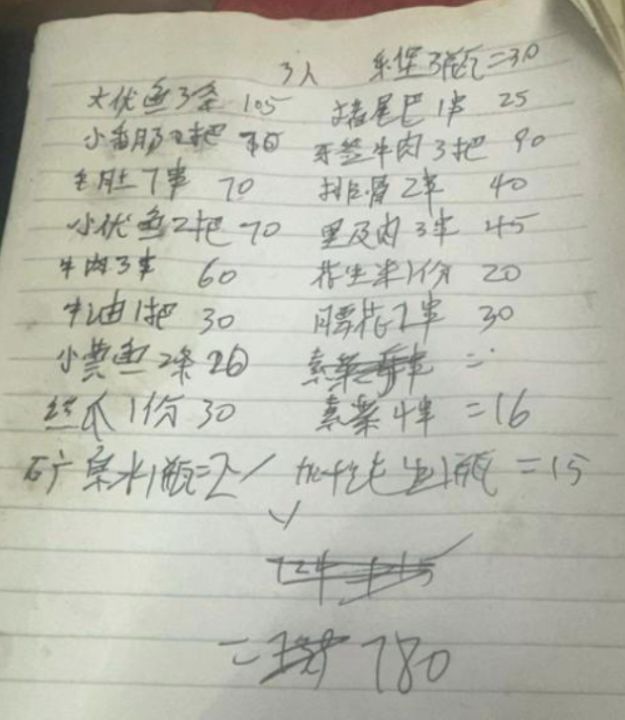 3人 乐堡3瓶=30
大优鱼3条 105 猪尾巴1串 25
小香肠2把 牙签牛肉3把 90
毛肚7串 70 排骨2串 40
小优鱼2把 70 里及肉3串 45
牛肉3串 60 花生米1份 20
牛油1把 30 腰花2串 30
小黄鱼2条 20
丝瓜1份 30 素菜4串 =16
矿泉水1瓶=2 纯生1瓶 =15
= 780